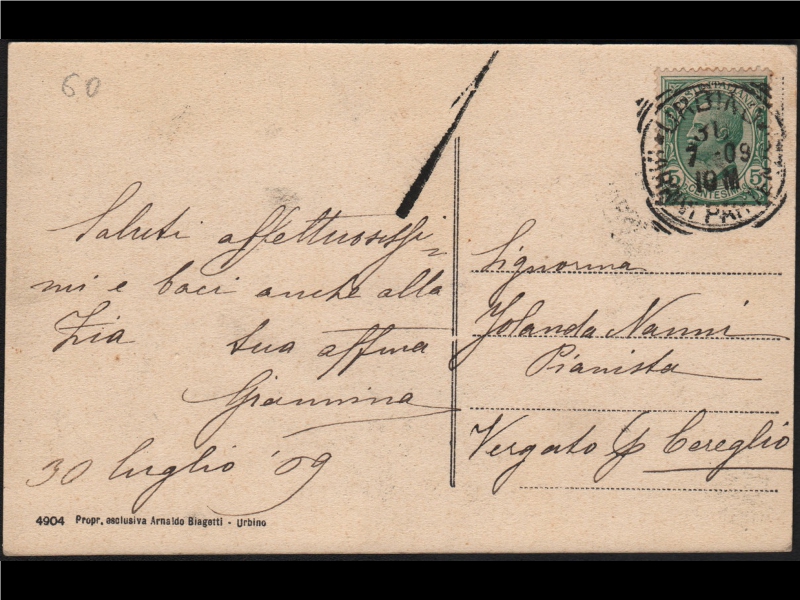 60
Saluti affettuosissi-
mi e baci anche alla
Zia tua affma
Giannina
30 luglio '09
4904 Propr. esclusiva Arnaldo Biagetti - Urbino
URBINO
31
7 - 09
10 M
5 5
CENTESIMI
Signorina
Yolanda Nanni
Pianista
Vergato Cereglio